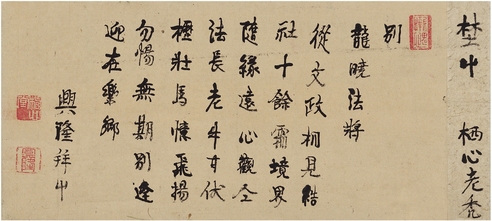 栖心老禿
別
龍曉法將
從文政相見結
社十餘霜境界
隨緣遠心觀全
法長老牛甘伏
櫪壯馬憶飛揚
勿無期別逢
迎在樂鄉
興隆拜